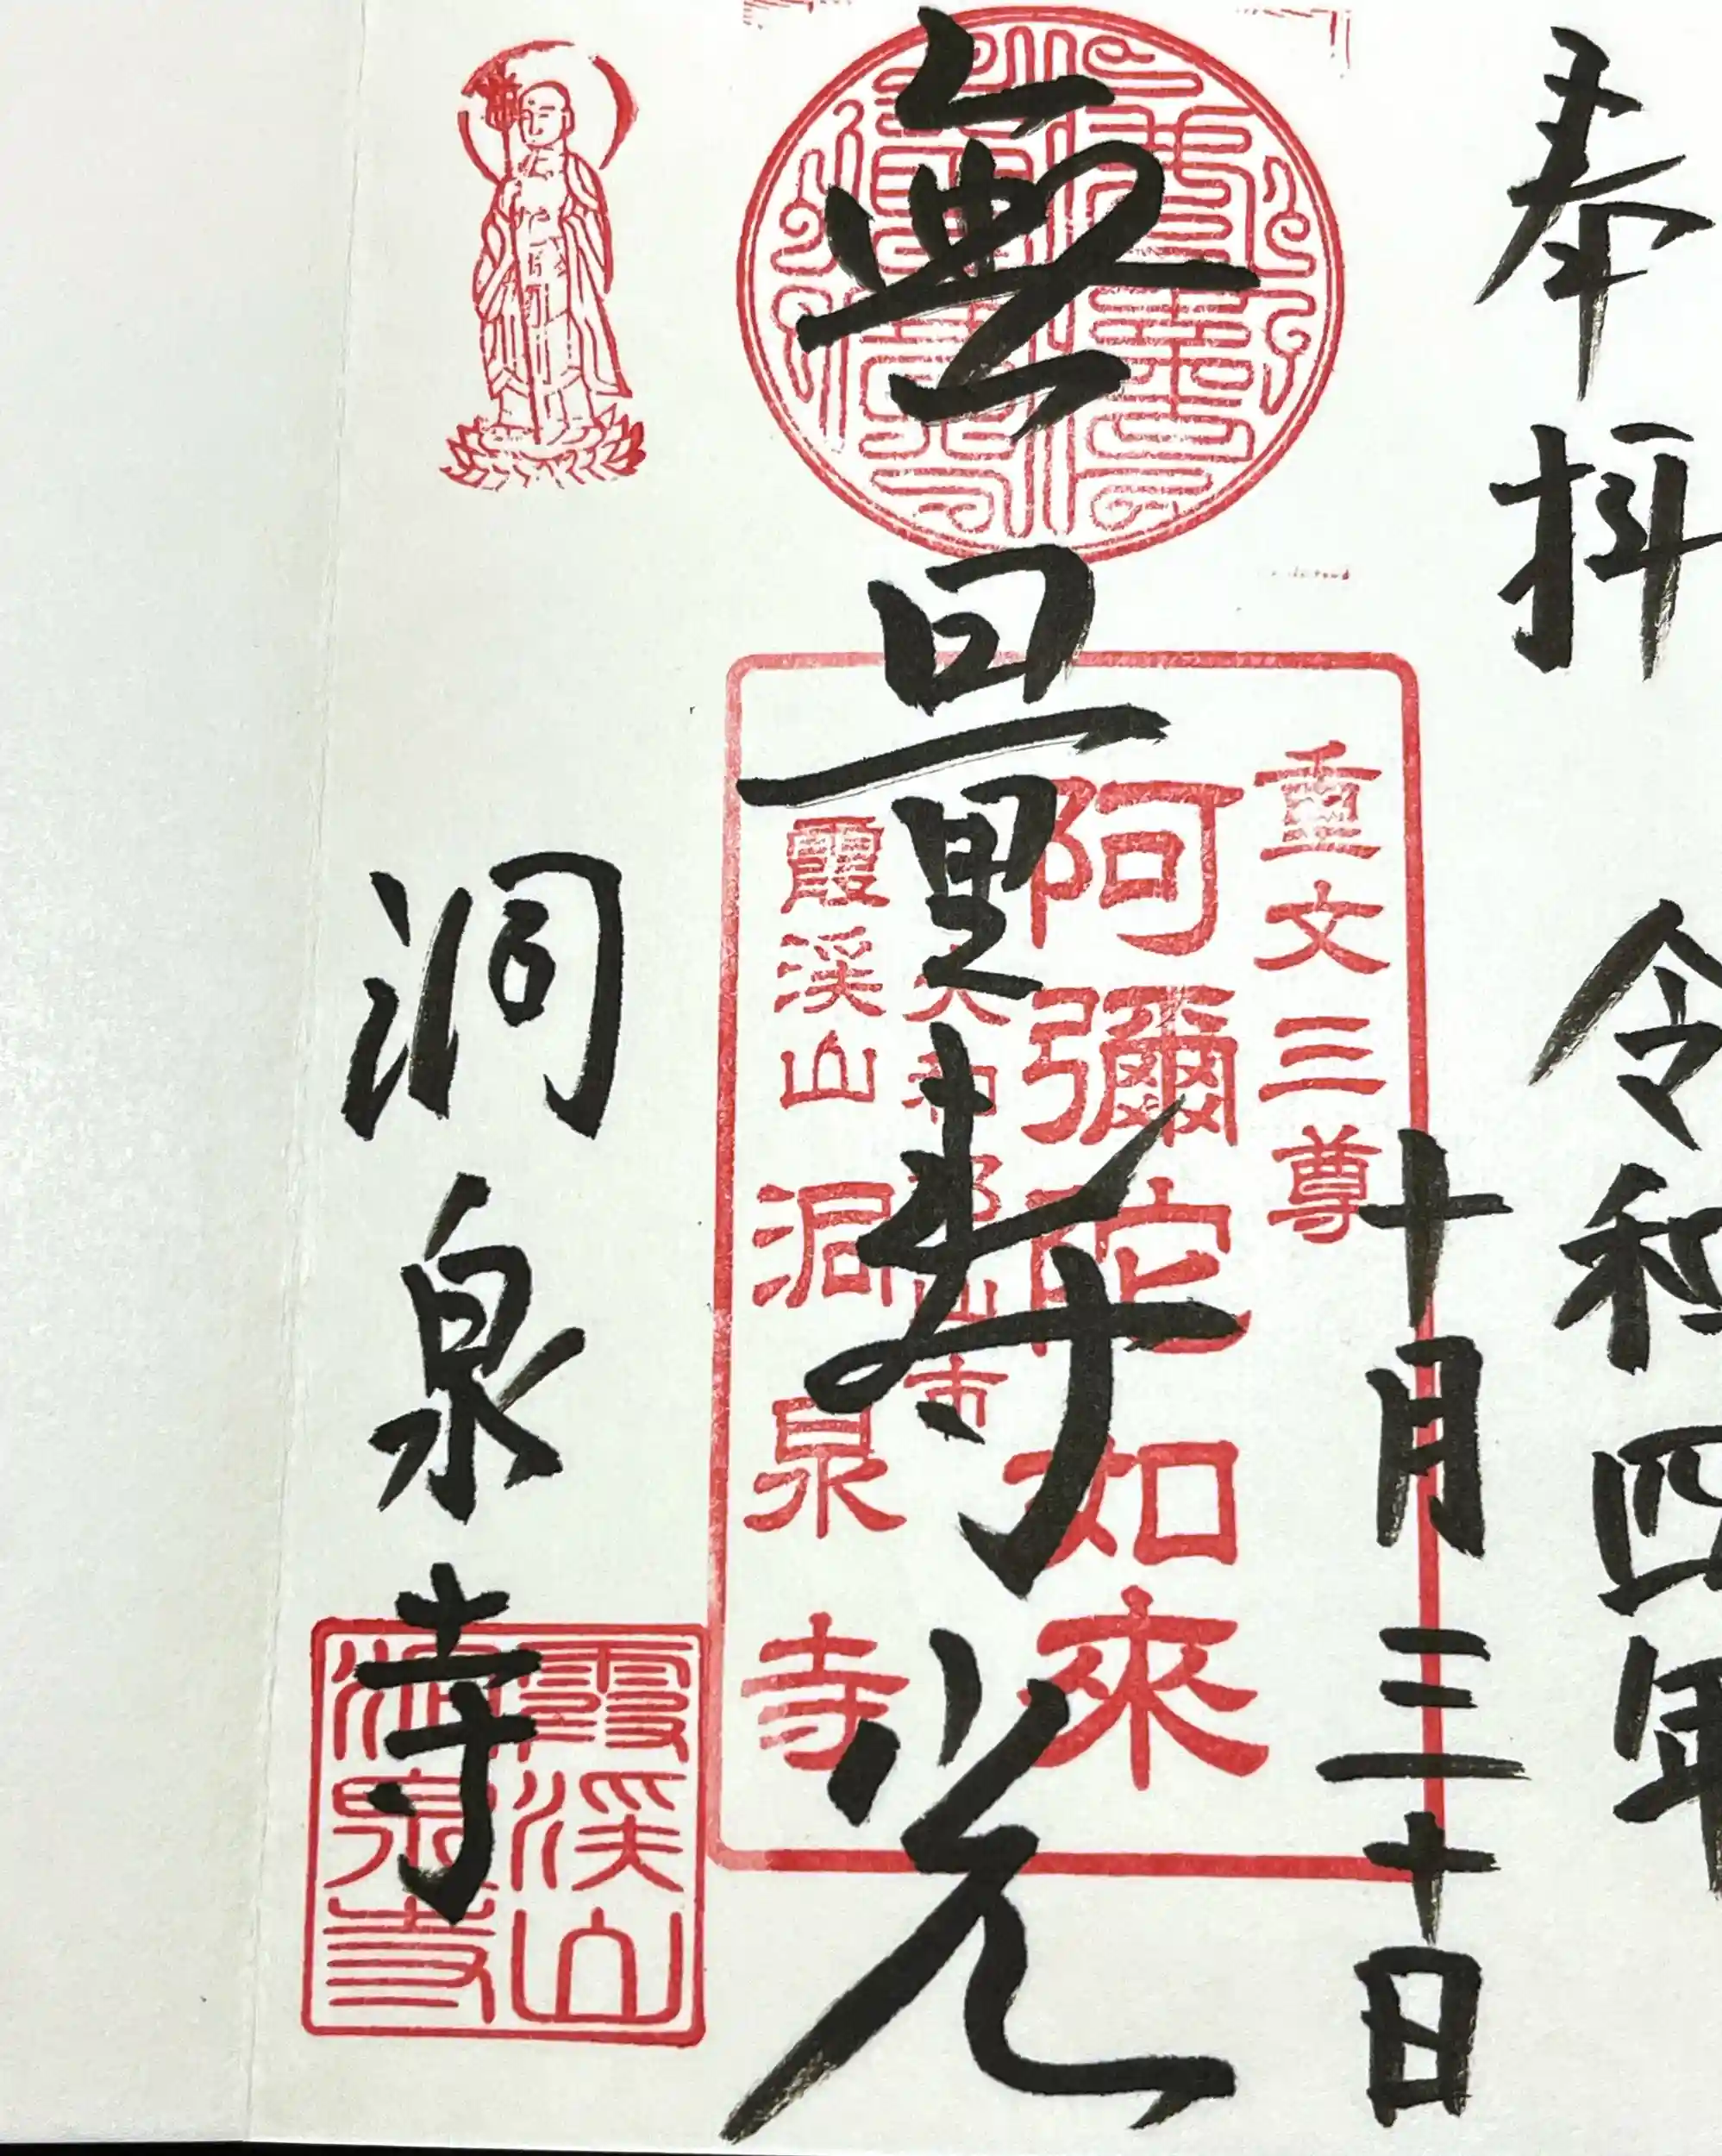 奉拝
令和四年
十月三十日
無量寿光
洞泉寺
重文三尊
阿彌陀如來
大和郡山市
霞渓山 洞泉寺
霞渓山
洞泉寺